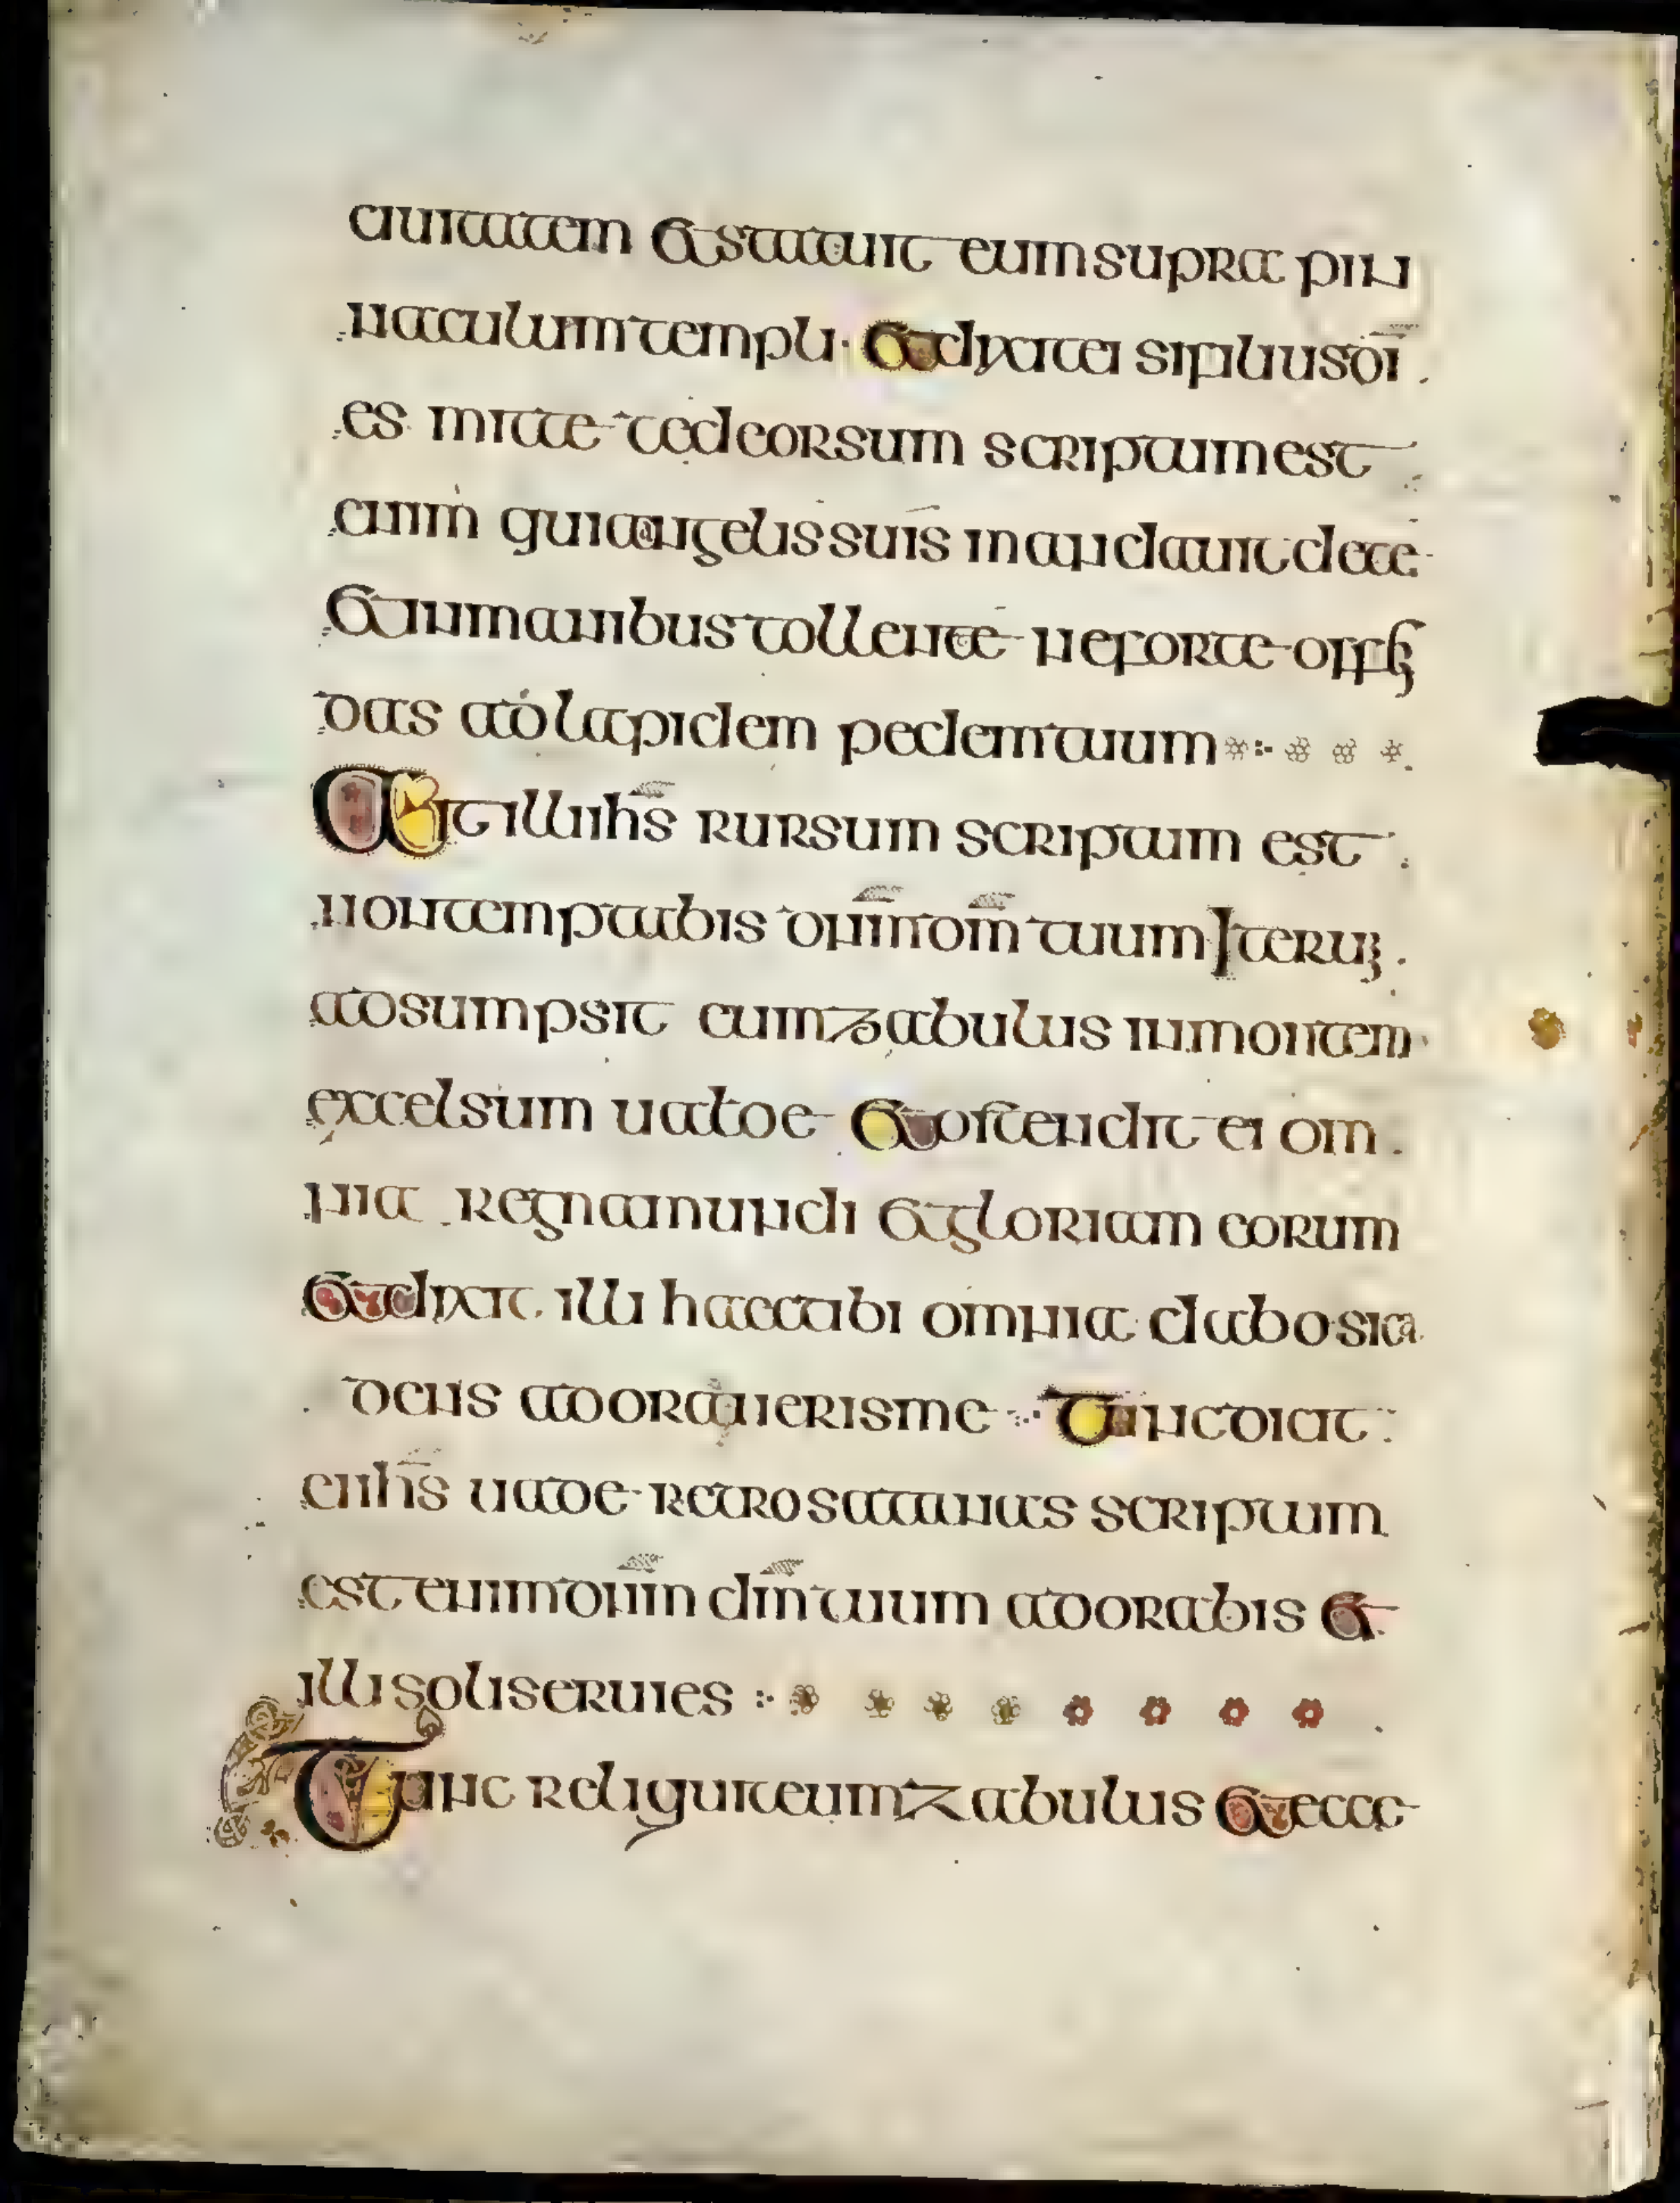 ciuitatem et statuit eum supra pin
naculum templi · et dixit ei si filius dī
es mitte te deorsum scriptum est
enim quia angelis suis mandauit de te
et in manibus tollent te ne forte offen
das ad lapidem pedem tuum
Ait illi ihs̄ rursum scriptum est
non temptabis dnm̄ dm̄ tuum Iteruꝫ
adsumpsit eum zabulus in montem
excelsum ualde et ostendit ei om
nia regna mundi et gloriam eorum
et dixit illi haec tibi omnia dabo si ca
dens adoraueris me Tunc dicit
ei ihs̄ uade retro satanas scriptum
est enim dnm̄ dm̄ tuum adorabis et
illi soli seruies
Tunc reliquit eum zabulus et ecce